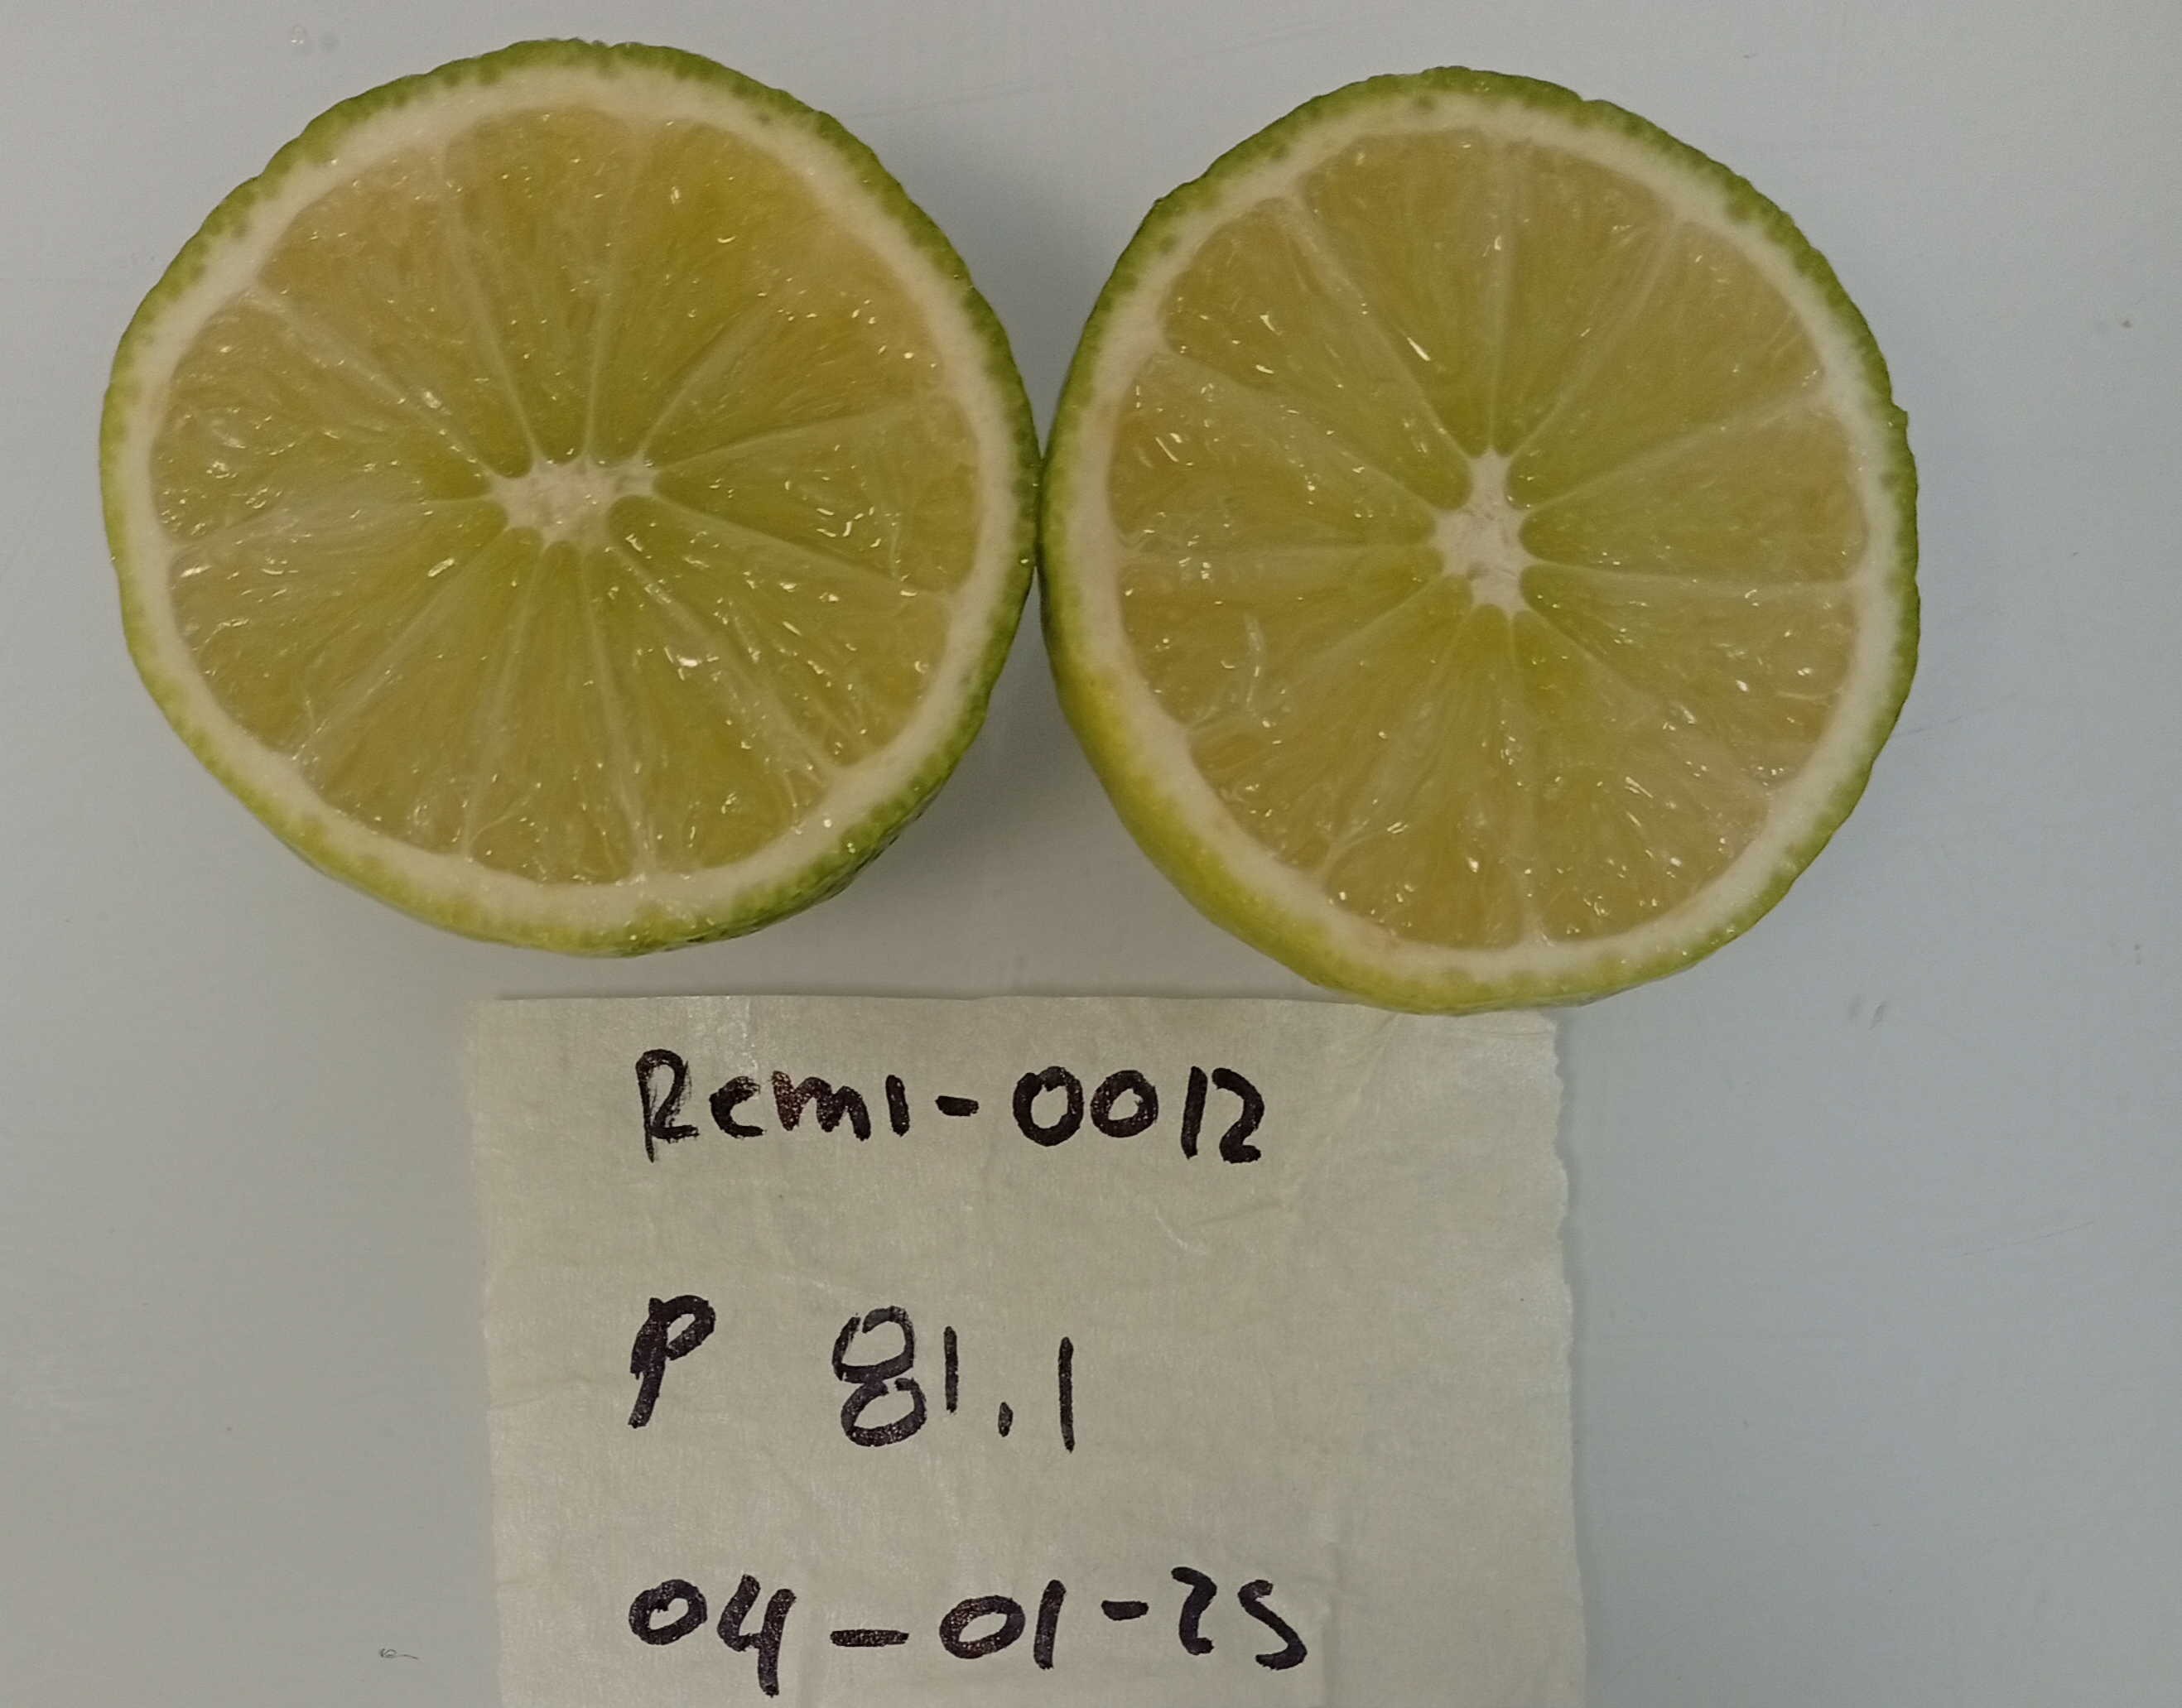 Remi-0012
P 81.1
04-01-25